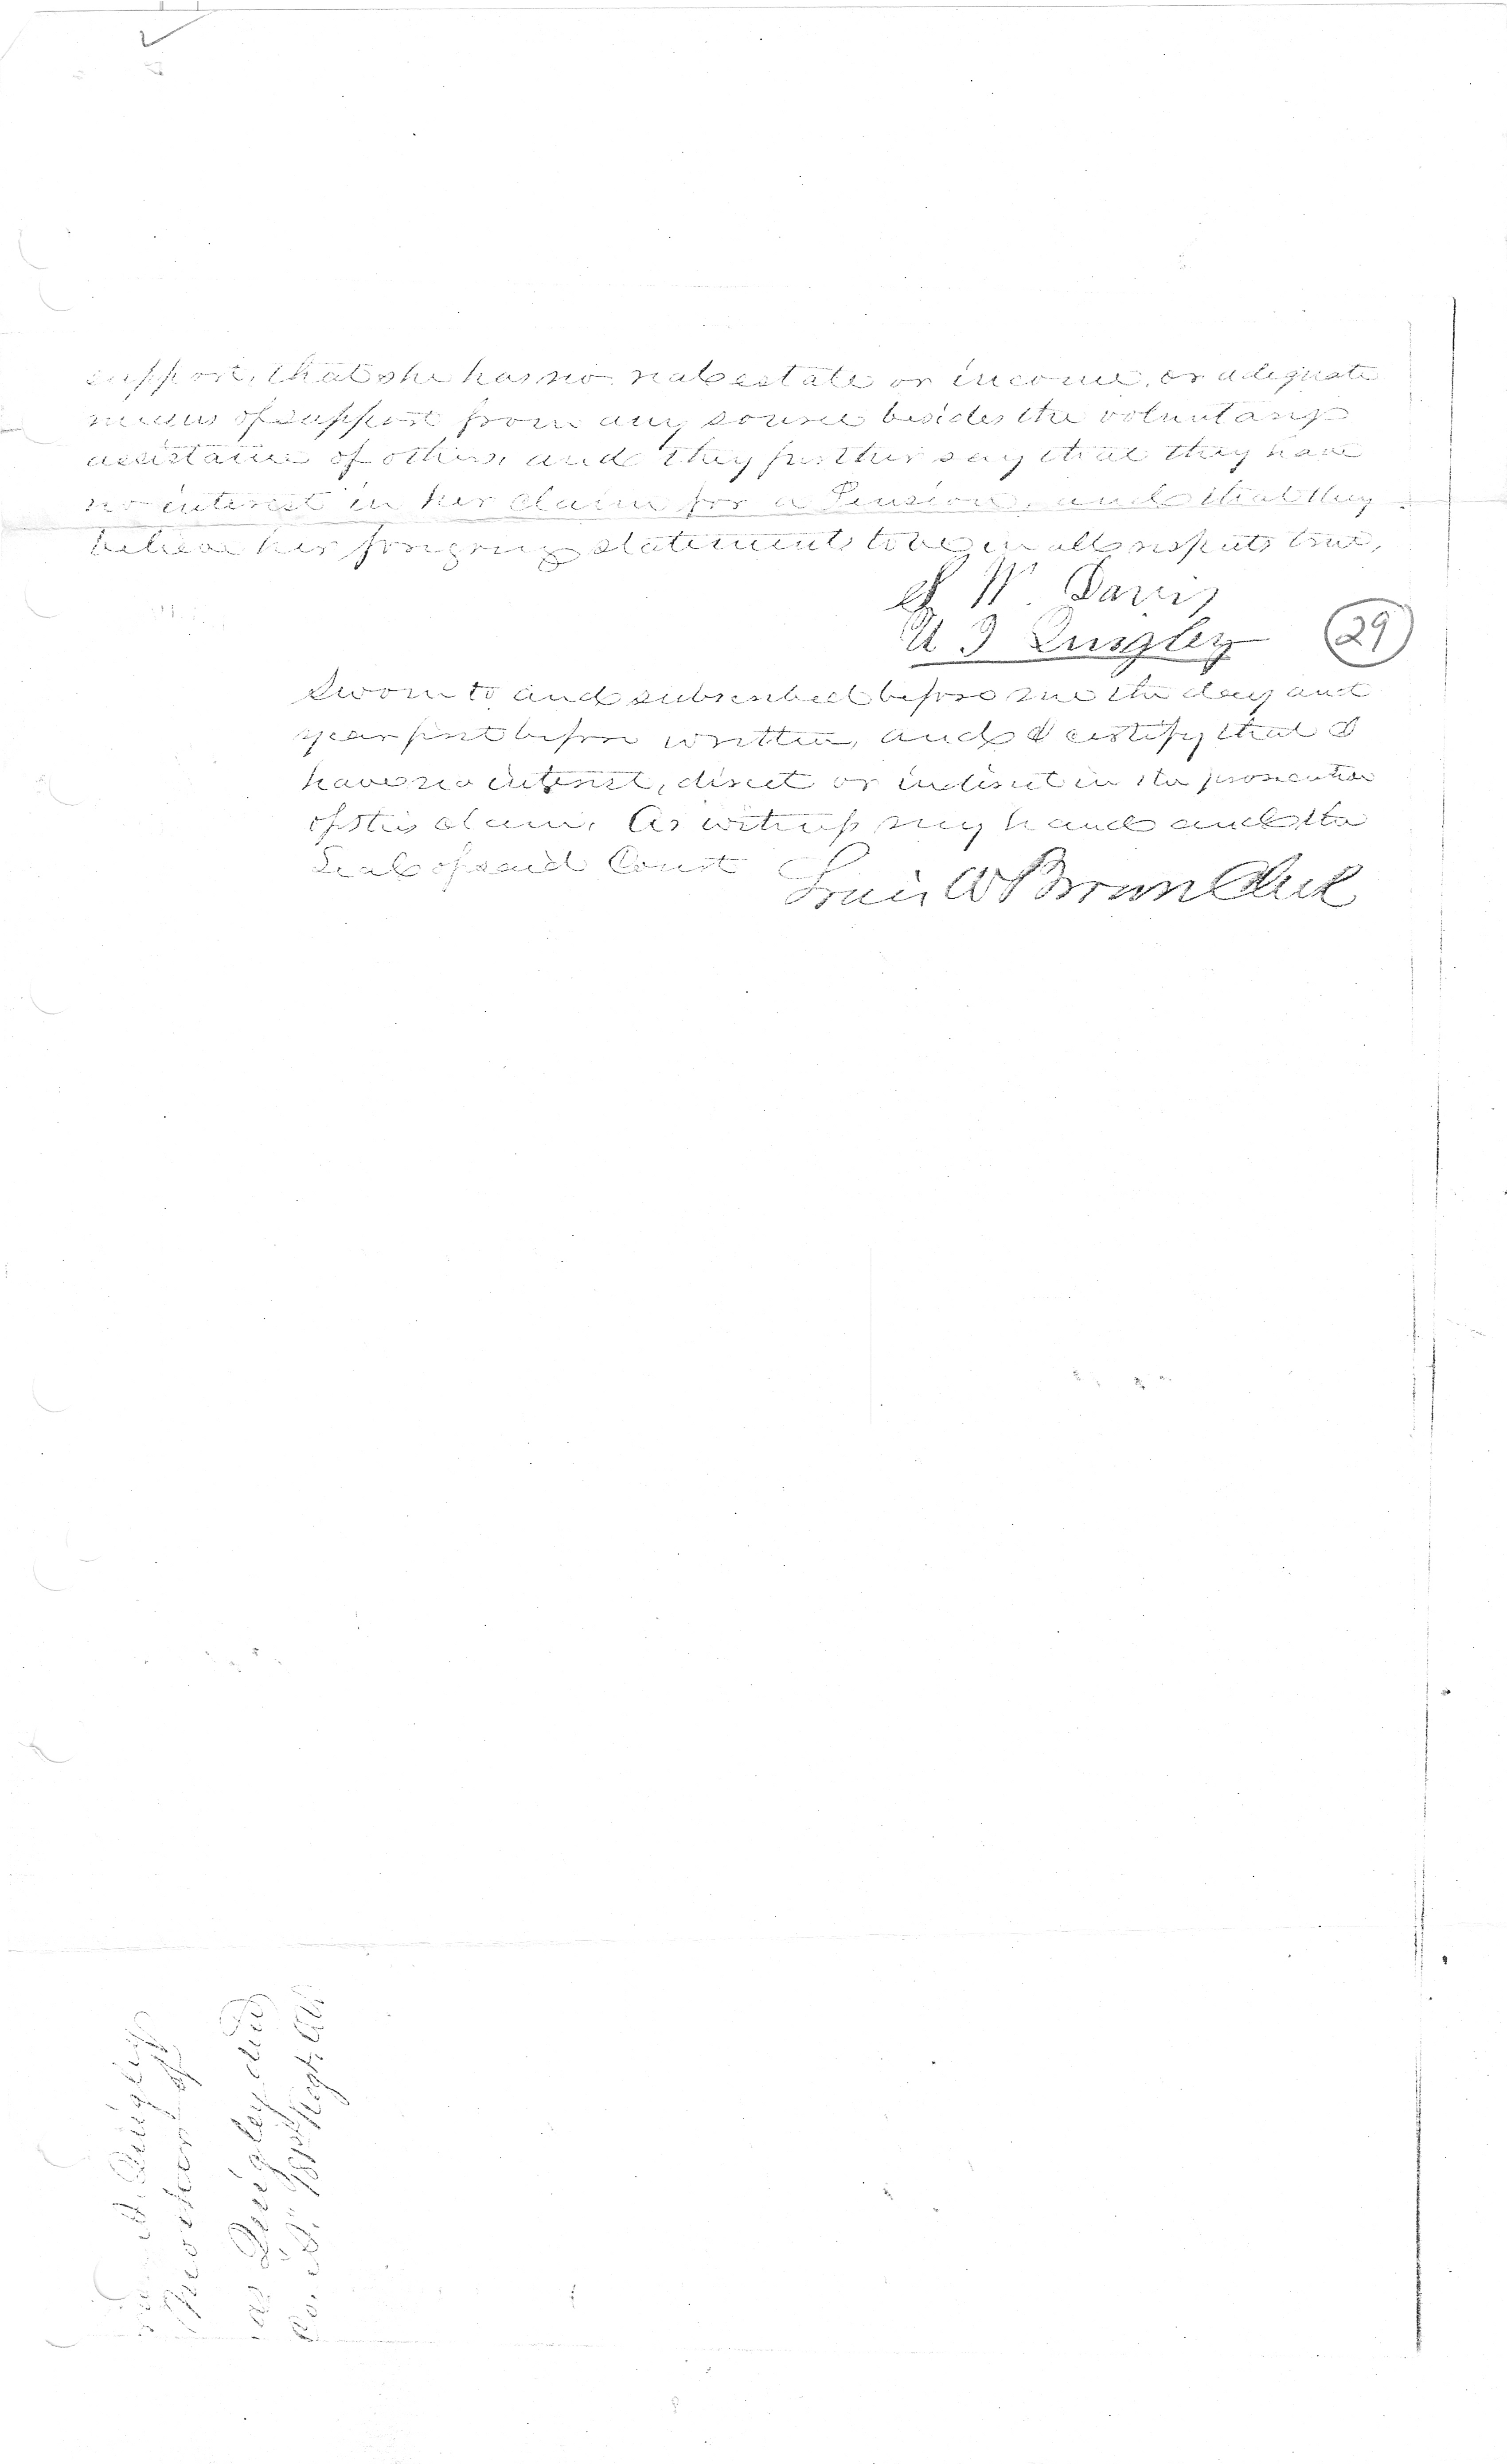 support, that she has no real estate or income, or adequate
means of support from any source besides the voluntary
assistance of others, and they further say that they have
no interest in her claim for a Pension, and that they
believe her foregoing statements to be in all respects true,
W. Davis
Quigley
29
Sworn to and subscribed before me the day and
year first before written, and I certify that I
have no interest, direct or indirect in the prosecution
of this claim. As witness my hand and the
Seal of said Court
W Brown Clerk
B. Quigley
Mother of
Quigley decd
Co. "B." 181st Regt.